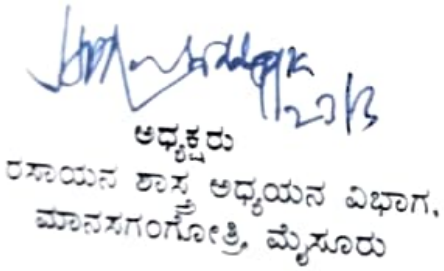 23/3
ಅಧ್ಯಕ್ಷರು
ರಸಾಯನ ಶಾಸ್ತ್ರ ಅಧ್ಯಯನ ವಿಭಾಗ,
ಮಾನಸಗಂಗೋತ್ರಿ, ಮೈಸೂರು